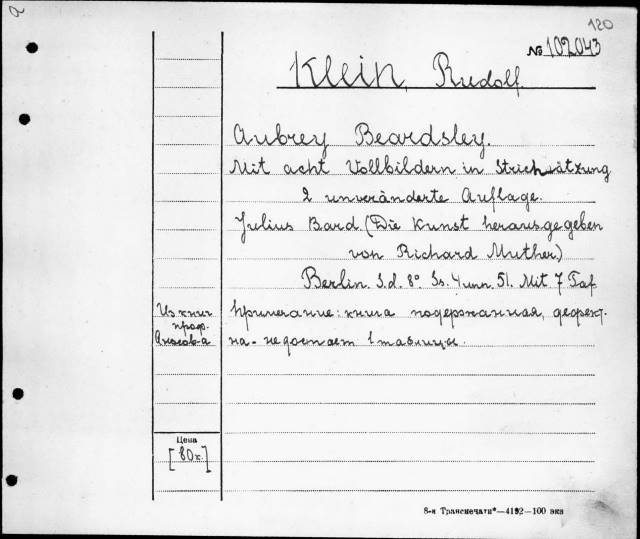 a
120
№ 102043
Klein, Rudolf.
Aubrey Beardsley.
Mit acht Vollbildern in Strichätzung
2 unveränderte Auflage.
Julius Bard. (Die Kunst herausgegeben
von Richard Muther)
Berlin. S.d. 8° Ss. 4 unn. 51. Mit 7 Taf
Из книг
проф.
Примечание: книга подержанная, дефект-
на - не достает 1 таблицы.
Цена
[80к.]
8-я Транспечати"—4192—100 экз